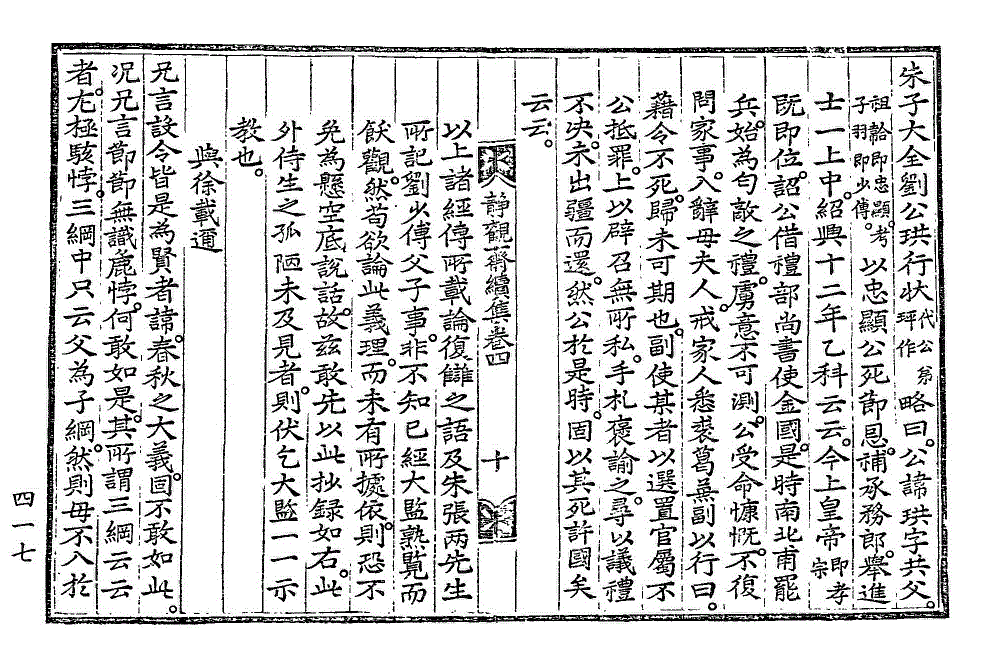 朱子大全劉公珙行狀代公弟玶作略曰公諱珙字共父
祖韐即忠顯考子羽即少傅以忠顯公死節恩補承務郎擧進
士一上中紹興十二年乙科云云今上皇帝即孝宗
旣即位詔公借禮部尚書使金國是時南北甫罷
兵始為匃敵之禮虜意不可測公受命慷慨不復
問家事入辭母夫人戒家人悉裘葛兼副以行曰
藉令不死歸未可期也副使某者以選置官屬不
公抵罪上以辟召無所私手札褒諭之尋以議禮
不决未出疆而還然公於是時固以其死許國矣
云云
靜觀齋續集卷四　十
以上諸經傳所載論復讎之語及朱張兩先生
所記劉少傅父子事非不知已經大監熟覽而
飫觀然苟欲論此義理而未有所據依則恐不
免為懸空底說話故玆敢先以此抄録如右此
外侍生之孤陋未及見者則伏乞大監一一示
教也
與徐載邇
兄言設令皆是為賢者諱春秋之大義固不敢如此
况兄言節節無識麁悖何敢如是其所謂三綱云云
者尤極駭悖三綱中只云父為子綱然則母不入於
四一七